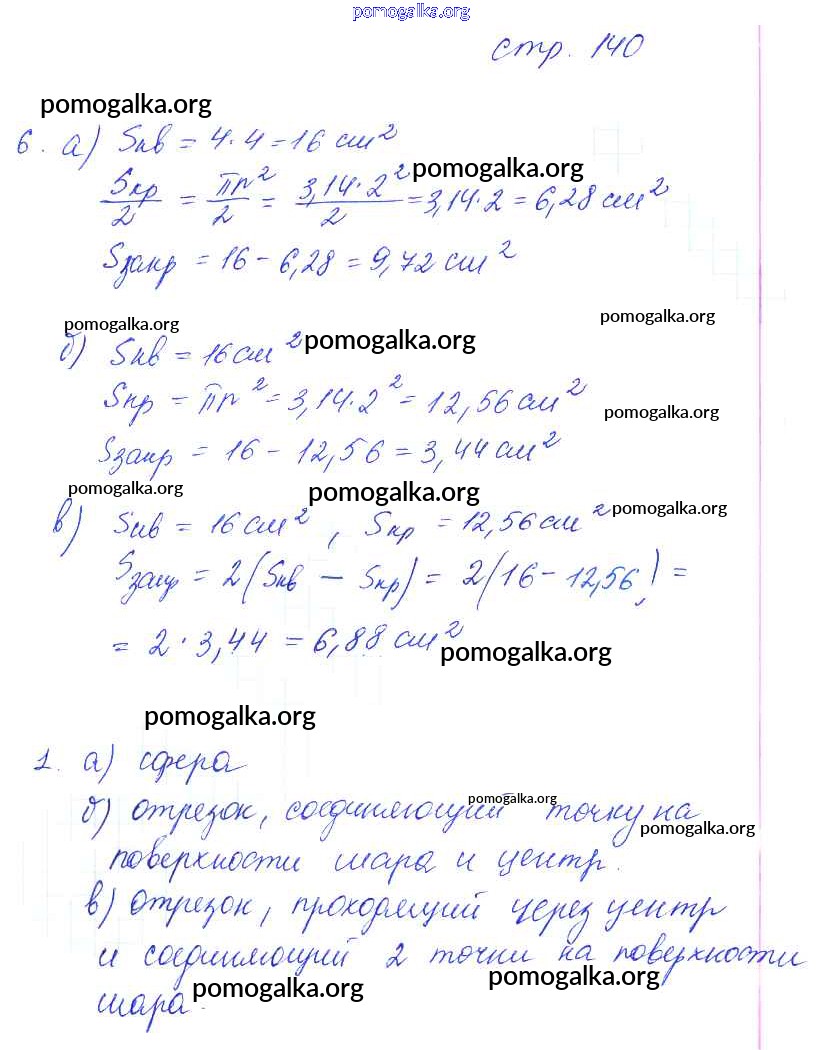 pomogalka.org
стр. 140
pomogalka.org
6. а) Sкв = 4·4 = 16 см²
Sкр/2 = πr²/2 = 3,14·2²/2 = 3,14·2 = 6,28 см² pomogalka.org
Sзакр = 16 - 6,28 = 9,72 см²
pomogalka.org pomogalka.org
б) Sкв = 16 см² pomogalka.org
Sкр = πr² = 3,14·2² = 12,56 см² pomogalka.org
Sзакр = 16 - 12,56 = 3,44 см²
pomogalka.org pomogalka.org
в) Sкв = 16 см², Sкр = 12,56 см² pomogalka.org
Sзакр = 2(Sкв - Sкр) = 2(16 - 12,56) =
= 2·3,44 = 6,88 см² pomogalka.org
pomogalka.org
1. а) сфера
pomogalka.org
б) отрезок, соединяющий точку на
pomogalka.org
поверхности шара и центр.
в) отрезок, проходящий через центр
и соединяющий 2 точки на поверхности
шара. pomogalka.org pomogalka.org